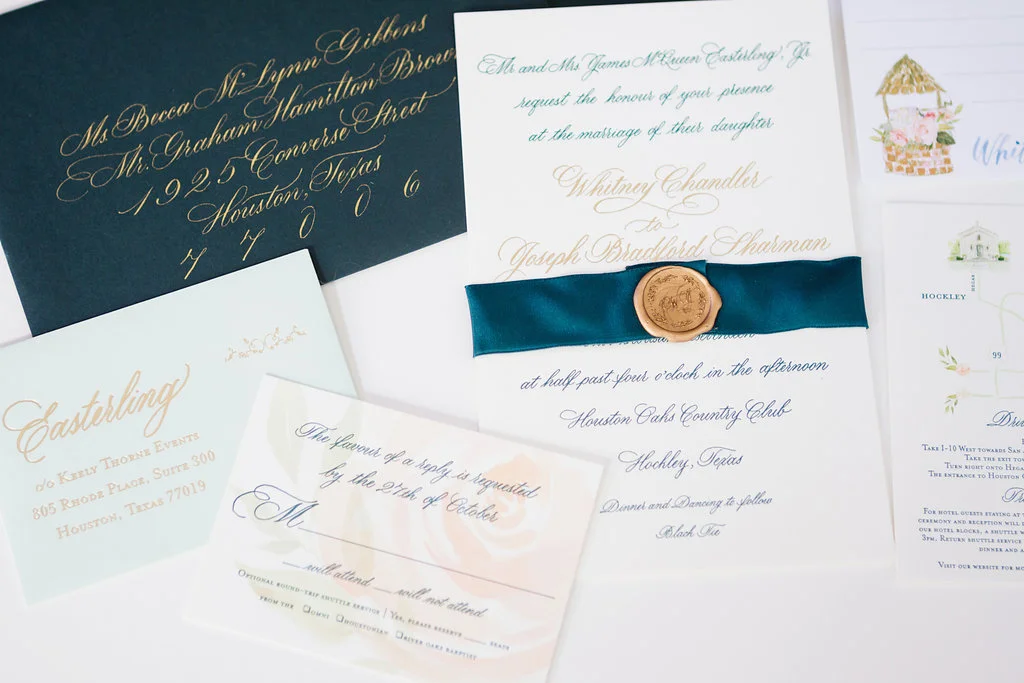 Ms. Becca McLynn Gibbens
Mr. Graham Hamilton Brown
1925 Converse Street
Houston, Texas
77006
Easterling
c/o Keely Thorne Events
805 Rhode Place, Suite 300
Houston, Texas 77019
The favour of a reply is requested
by the 27th of October
M
will attend will not attend
Optional round-trip shuttle service | Yes, please reserve seats
from the Omni Houstonian River Oaks Baptist
Mr. and Mrs. James McQueen Easterling, Jr.
request the honour of your presence
at the marriage of their daughter
Whitney Chandler
to
Joseph Bradford Sharman
at half past four o'clock in the afternoon
Houston Oaks Country Club
Hockley, Texas
Dinner and Dancing to follow
Black Tie
Whit
Hegar
Hockley
99
Take I-10 West towards San
Take the exit to
Turn right onto Hega
The entrance to Houston
For hotel guests staying at
ceremony and reception will
our hotel blocks, a shuttle w
3pm. Return shuttle service
dinner and
Visit our website for mo